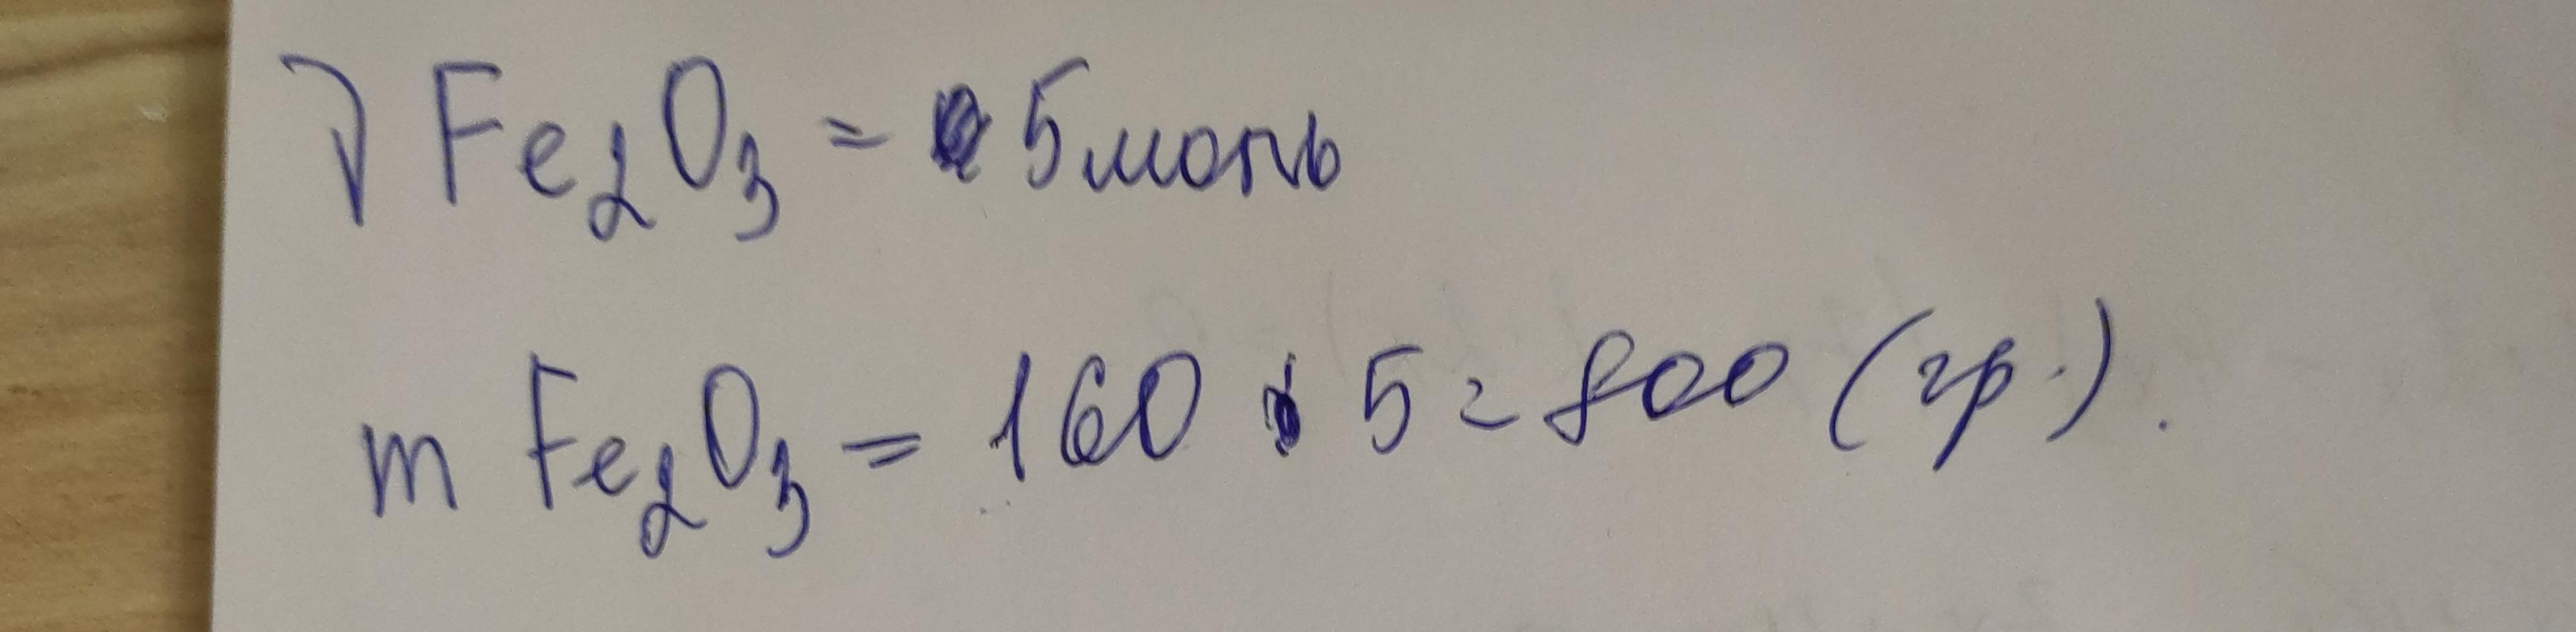 ν Fe₂O₃ = 5 моль
m Fe₂O₃ = 160 · 5 = 800 (гр.).